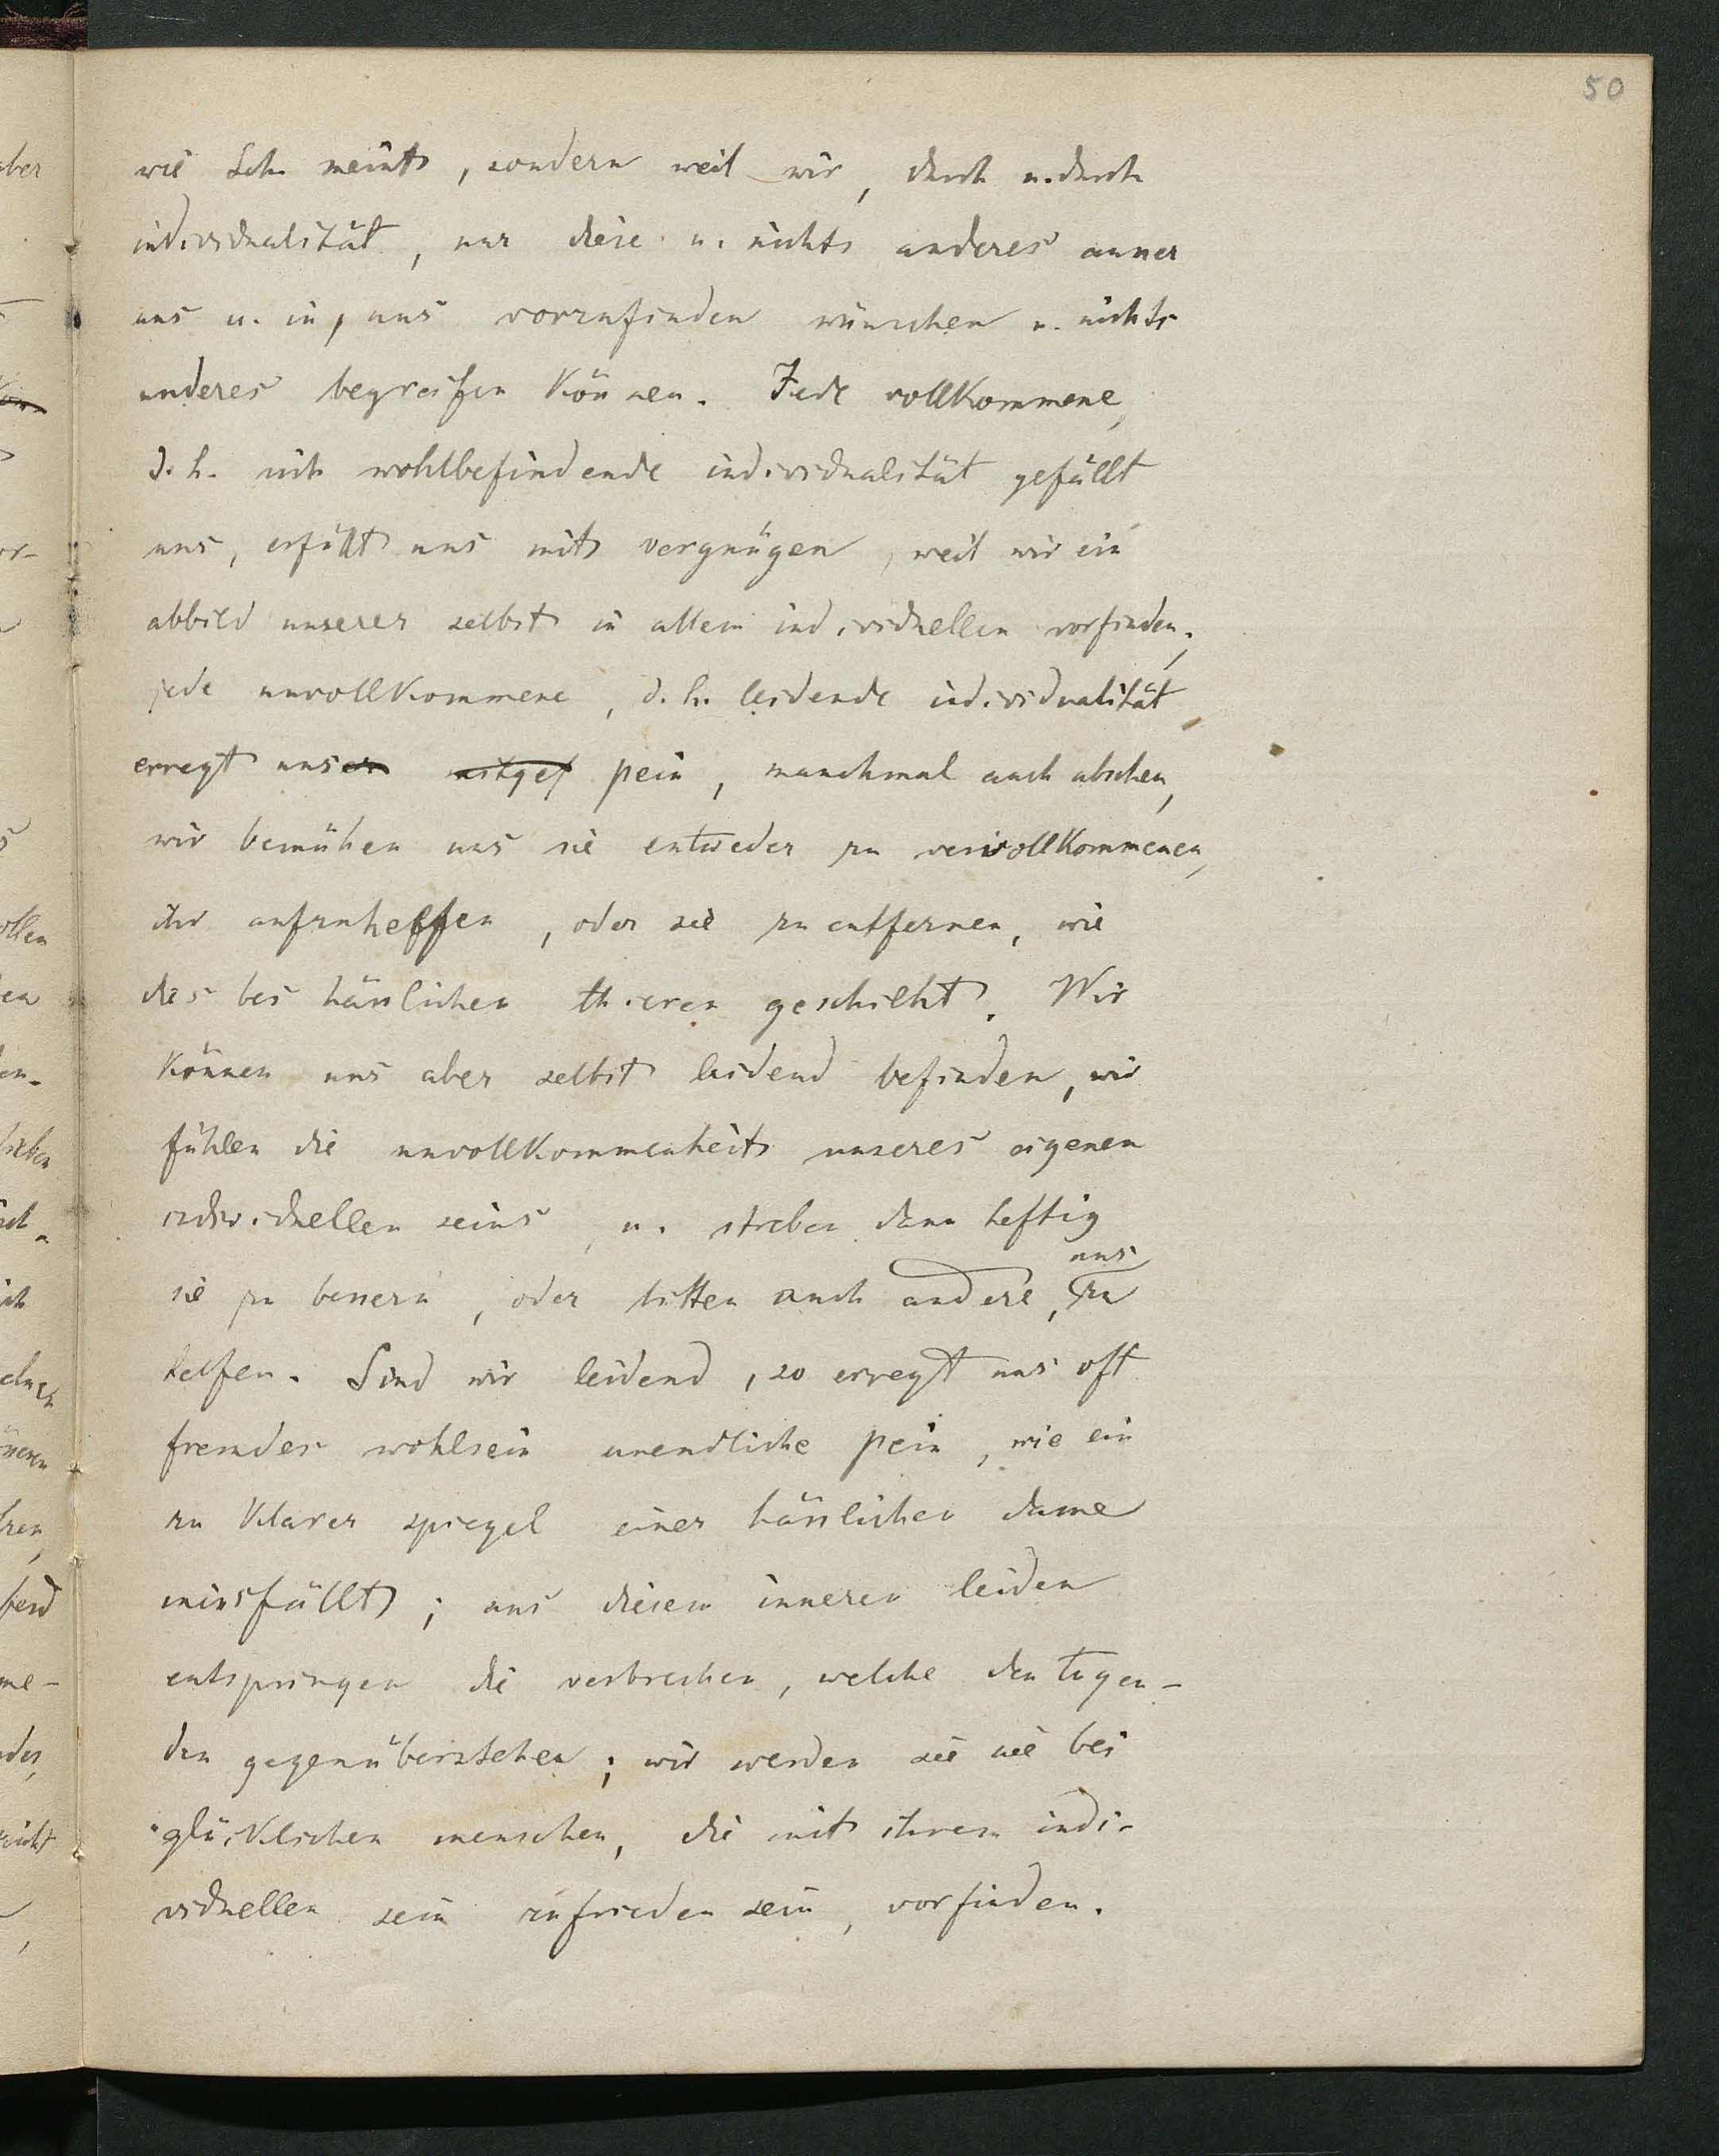 50
wie Sch. meint, sondern weil wir, durch u. durch
individualität, nur diese u. nichts anderes ausser
uns u. in uns vorzufinden wünschen u. nichts
anderes begreifen können. Jede vollkommene,
d. h. sich wohlbefindende individualität gefällt
uns, erfüllt uns mit vergnügen, weil wir ein
abbild unserer selbst in allem individuellen vorfinden;
jede unvollkommene, d. h. leidende individualität
erregt uns pein, manchmal auch abscheu,
wir bemühen uns sie entweder zu vervollkommenen,
ihr aufzuhelfen, oder sie zu entfernen, wie
dies bei hässlichen thieren geschieht. Wir
können uns aber selbst leidend befinden, wir
fühlen die unvollkommenheit unseres eigenen
individuellen seins, u. streben dann heftig
sie zu bessern, oder bitten auch andere, uns zu
helfen. Sind wir leidend, so erregt uns oft
fremdes wohlsein unendliche pein, wie ein
zu klarer spiegel einer hässlichen dame
missfällt; aus diesem inneren leiden
entspringen die verbrechen, welche den tugen-
den gegenüberstehen; wir werden sie nie bei
glücklichen menschen, die mit ihrem indi-
viduellen sein zufrieden sein, vorfinden.